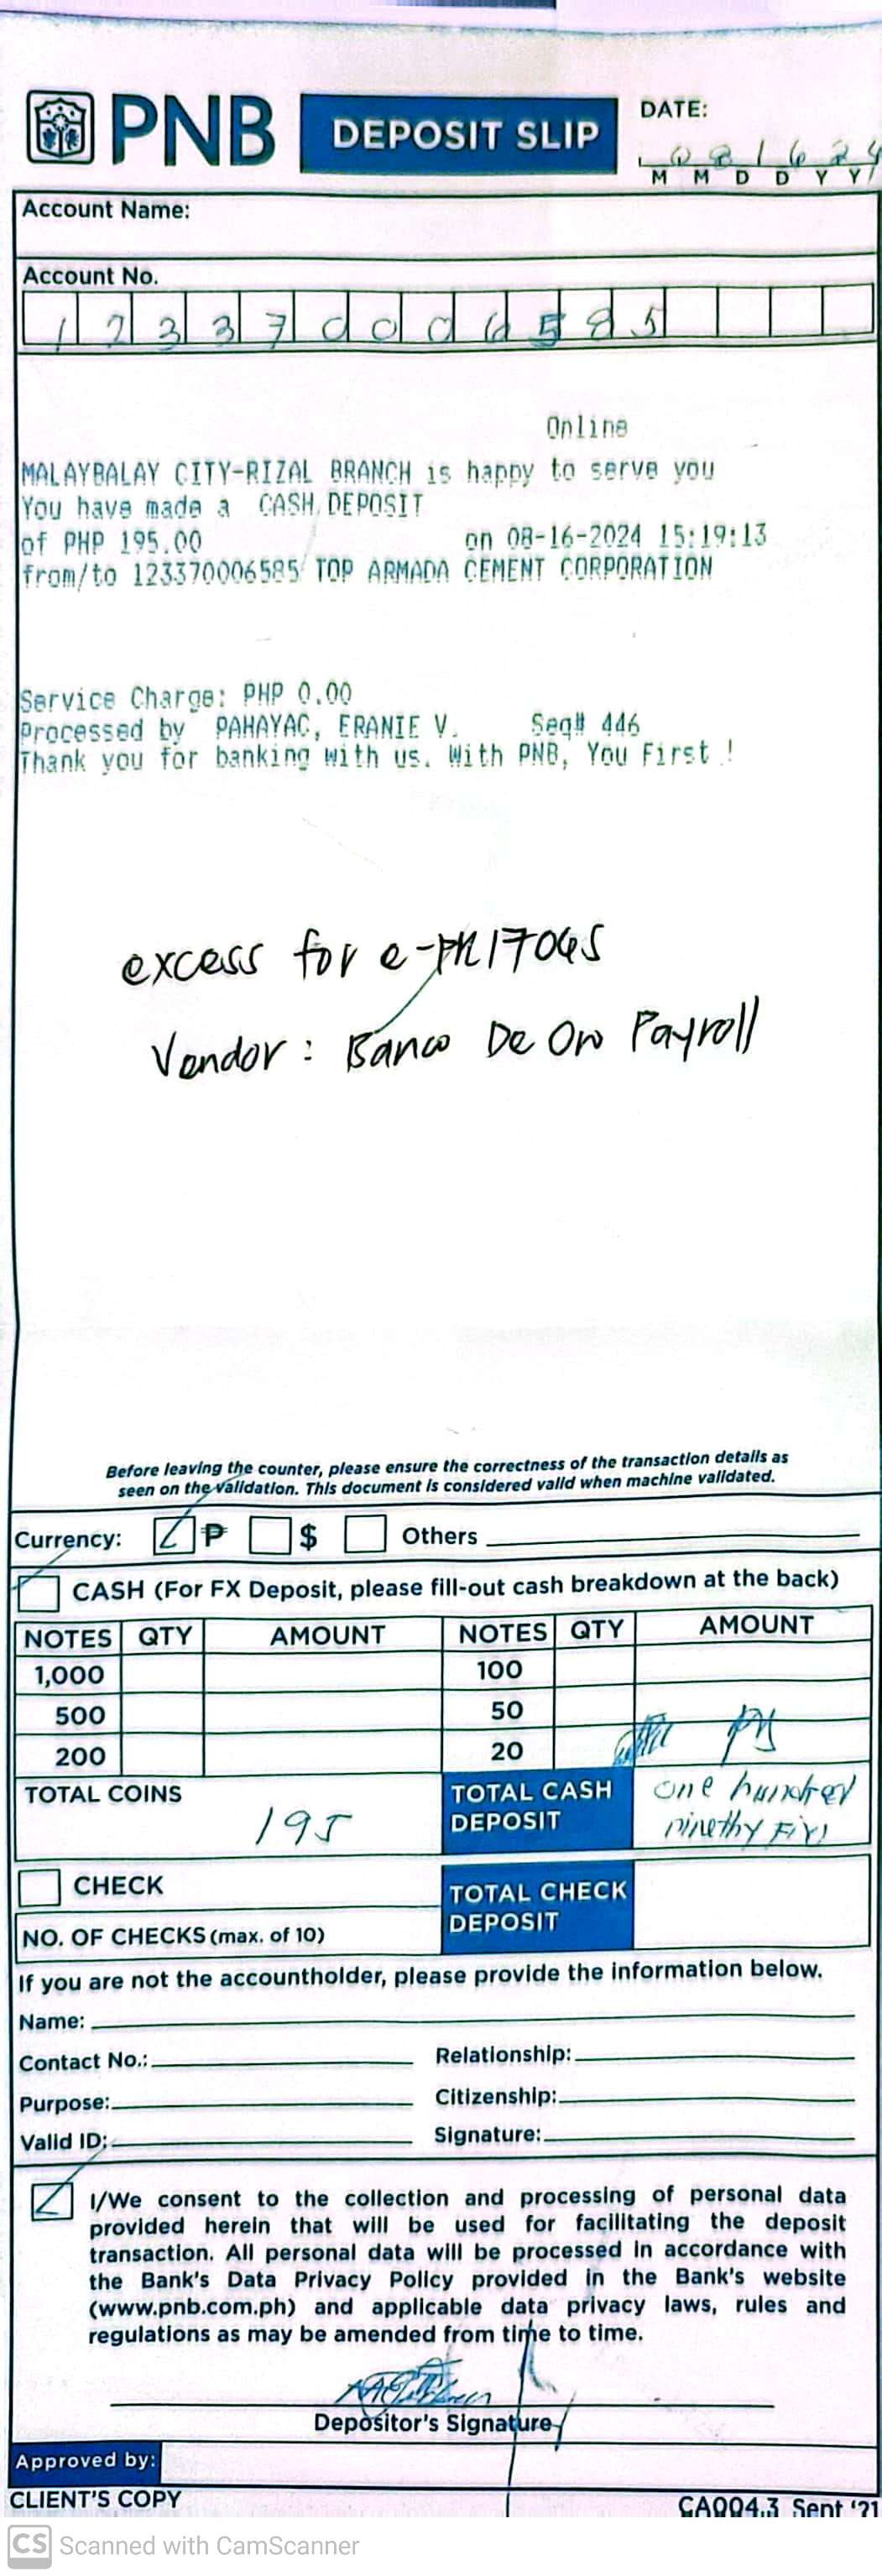 PNB DEPOSIT SLIP
DATE:
081624
M M D D Y Y
Account Name:
Account No.
123370006585
Online
MALAYBALAY CITY-RIZAL BRANCH is happy to serve you
You have made a CASH DEPOSIT
of PHP 195.00 on 08-16-2024 15:19:13
from/to 123370006585 TOP ARMADA CEMENT CORPORATION
Service Charge: PHP 0.00
Processed by PAHAYAC, ERANIE V. Seq# 446
Thank you for banking with us. With PNB, You First !
excess for
Vendor: Banco De Oro Payroll
Before leaving the counter, please ensure the correctness of the transaction details as
seen on the validation. This document is considered valid when machine validated.
Currency: ₱ $ Others
CASH (For FX Deposit, please fill-out cash breakdown at the back)
NOTES QTY AMOUNT NOTES QTY AMOUNT
1,000 100
500 50
200 20
TOTAL COINS 195 TOTAL CASH DEPOSIT one hundred
ninethy five
CHECK
NO. OF CHECKS (max. of 10) TOTAL CHECK DEPOSIT
If you are not the accountholder, please provide the information below.
Name:
Contact No.: Relationship:
Purpose: Citizenship:
Valid ID: Signature:
I/We consent to the collection and processing of personal data
provided herein that will be used for facilitating the deposit
transaction. All personal data will be processed in accordance with
the Bank's Data Privacy Policy provided in the Bank's website
(www.pnb.com.ph) and applicable data privacy laws, rules and
regulations as may be amended from time to time.
Depositor's Signature
Approved by:
CLIENT'S COPY CA004.3 Sept '21
CS Scanned with CamScanner